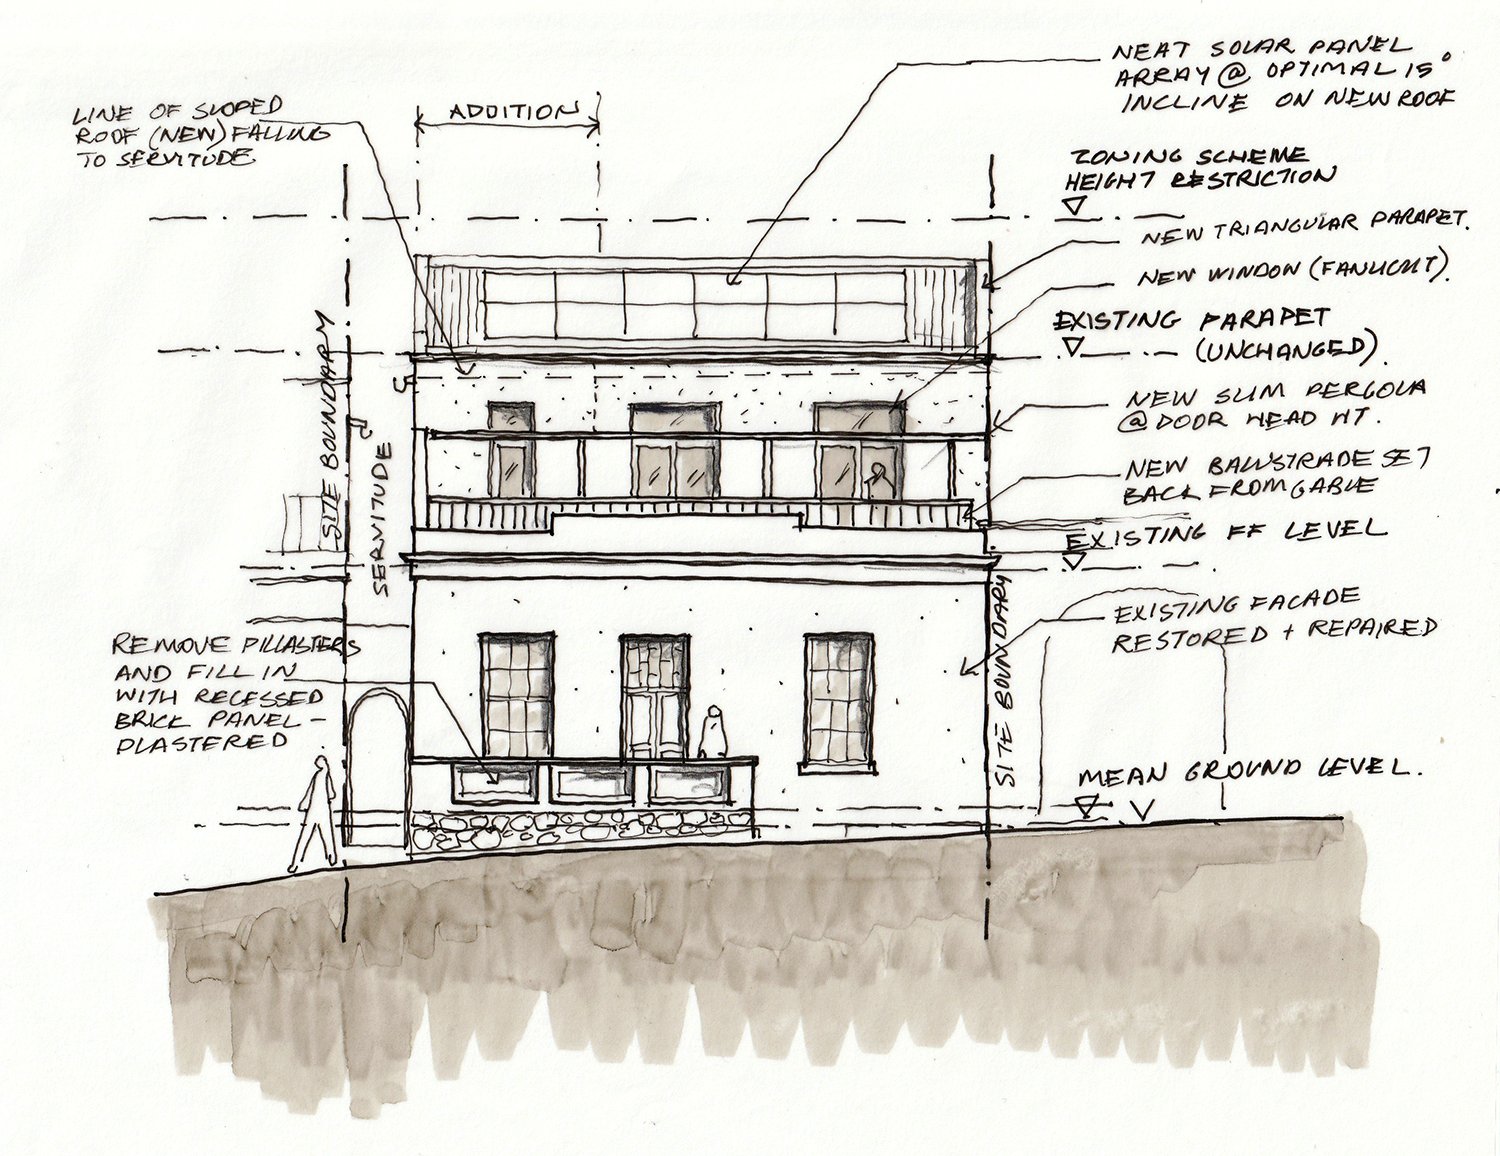 NEAT SOLAR PANEL
ARRAY @ OPTIMAL 15°
INCLINE ON NEW ROOF
LINE OF SLOPED
ROOF (NEW) FALLING
TO SERVITUDE
ADDITION
ZONING SCHEME
HEIGHT RESTRICTION
NEW TRIANGULAR PARAPET.
NEW WINDOW (FANLIGHT).
EXISTING PARAPET
(UNCHANGED).
NEW SLIM PERGOLA
@ DOOR HEAD HT.
NEW BALUSTRADE SET
BACK FROM GABLE
EXISTING FF LEVEL
EXISTING FACADE
RESTORED + REPAIRED
SITE BOUNDARY
SERVITUDE
SITE BOUNDARY
REMOVE PILLASTERS
AND FILL IN
WITH RECESSED
BRICK PANEL -
PLASTERED
MEAN GROUND LEVEL.